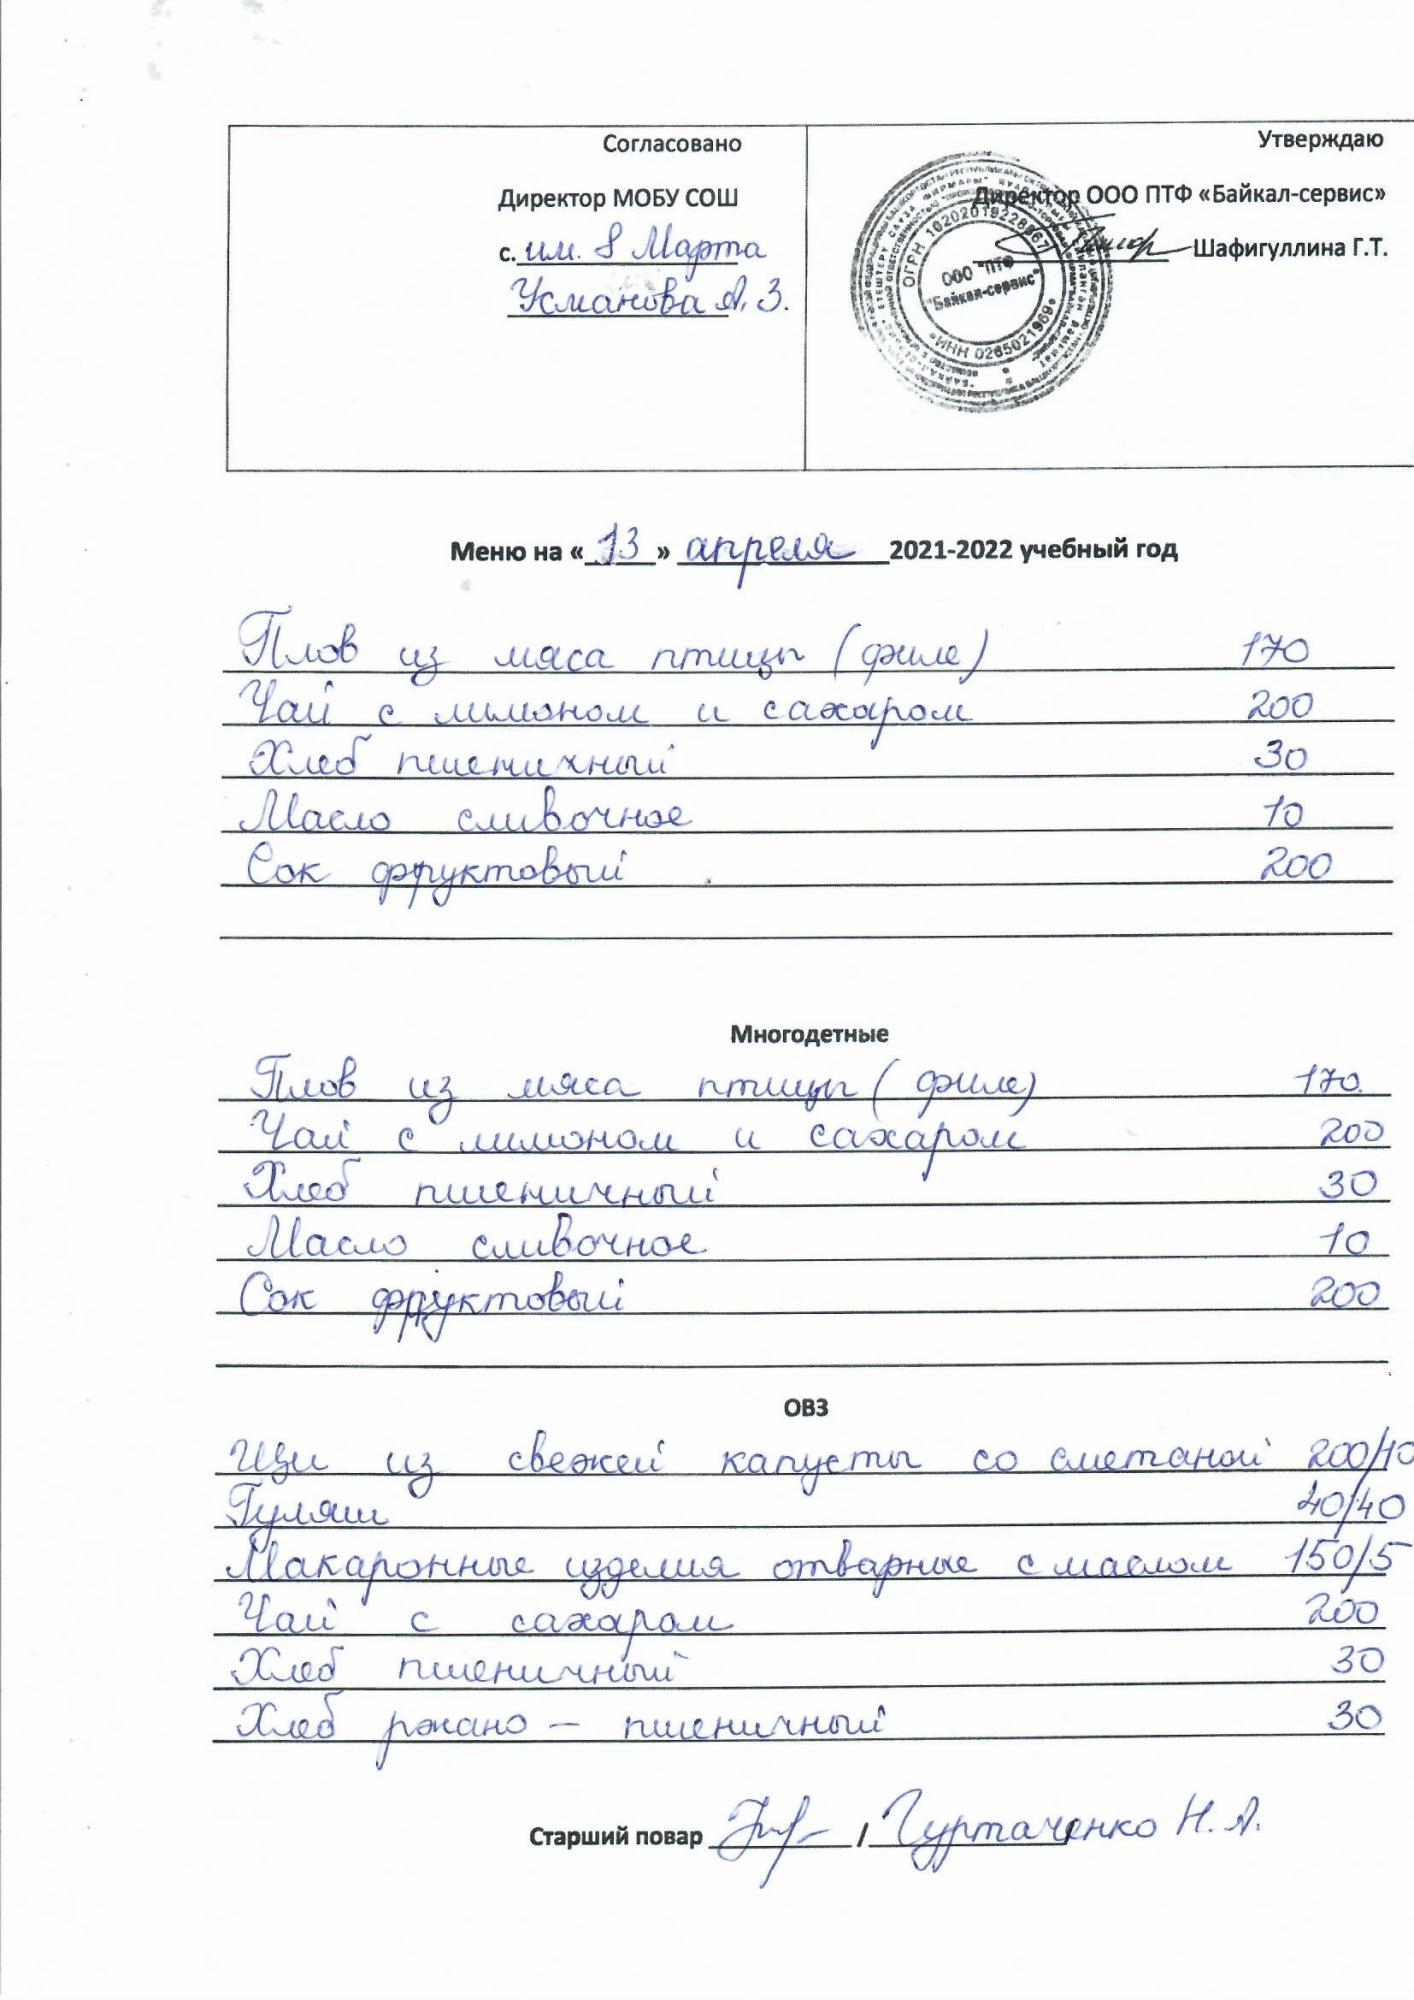 Согласовано
Директор МОБУ СОШ
с. им. 8 Марта
Усманова А. З.
Утверждаю
Директор ООО ПТФ «Байкал-сервис»
Шафигуллина Г.Т.
ОГРН 1020201922856
ООО "ПТФ
"Байкал-сервис"
ИНН 0265021969
Меню на « 13 » апреля 2021-2022 учебный год
Плов из мяса птицы (филе) 170
Чай с лимоном и сахаром 200
Хлеб пшеничный 30
Масло сливочное 10
Сок фруктовый 200
Многодетные
Плов из мяса птицы (филе) 170
Чай с лимоном и сахаром 200
Хлеб пшеничный 30
Масло сливочное 10
Сок фруктовый 200
ОВЗ
Щи из свежей капусты со сметаной 200/10
Гуляш 40/40
Макаронные изделия отварные с маслом 150/5
Чай с сахаром 200
Хлеб пшеничный 30
Хлеб ржано – пшеничный 30
Старший повар / Гуртаченко Н. А.